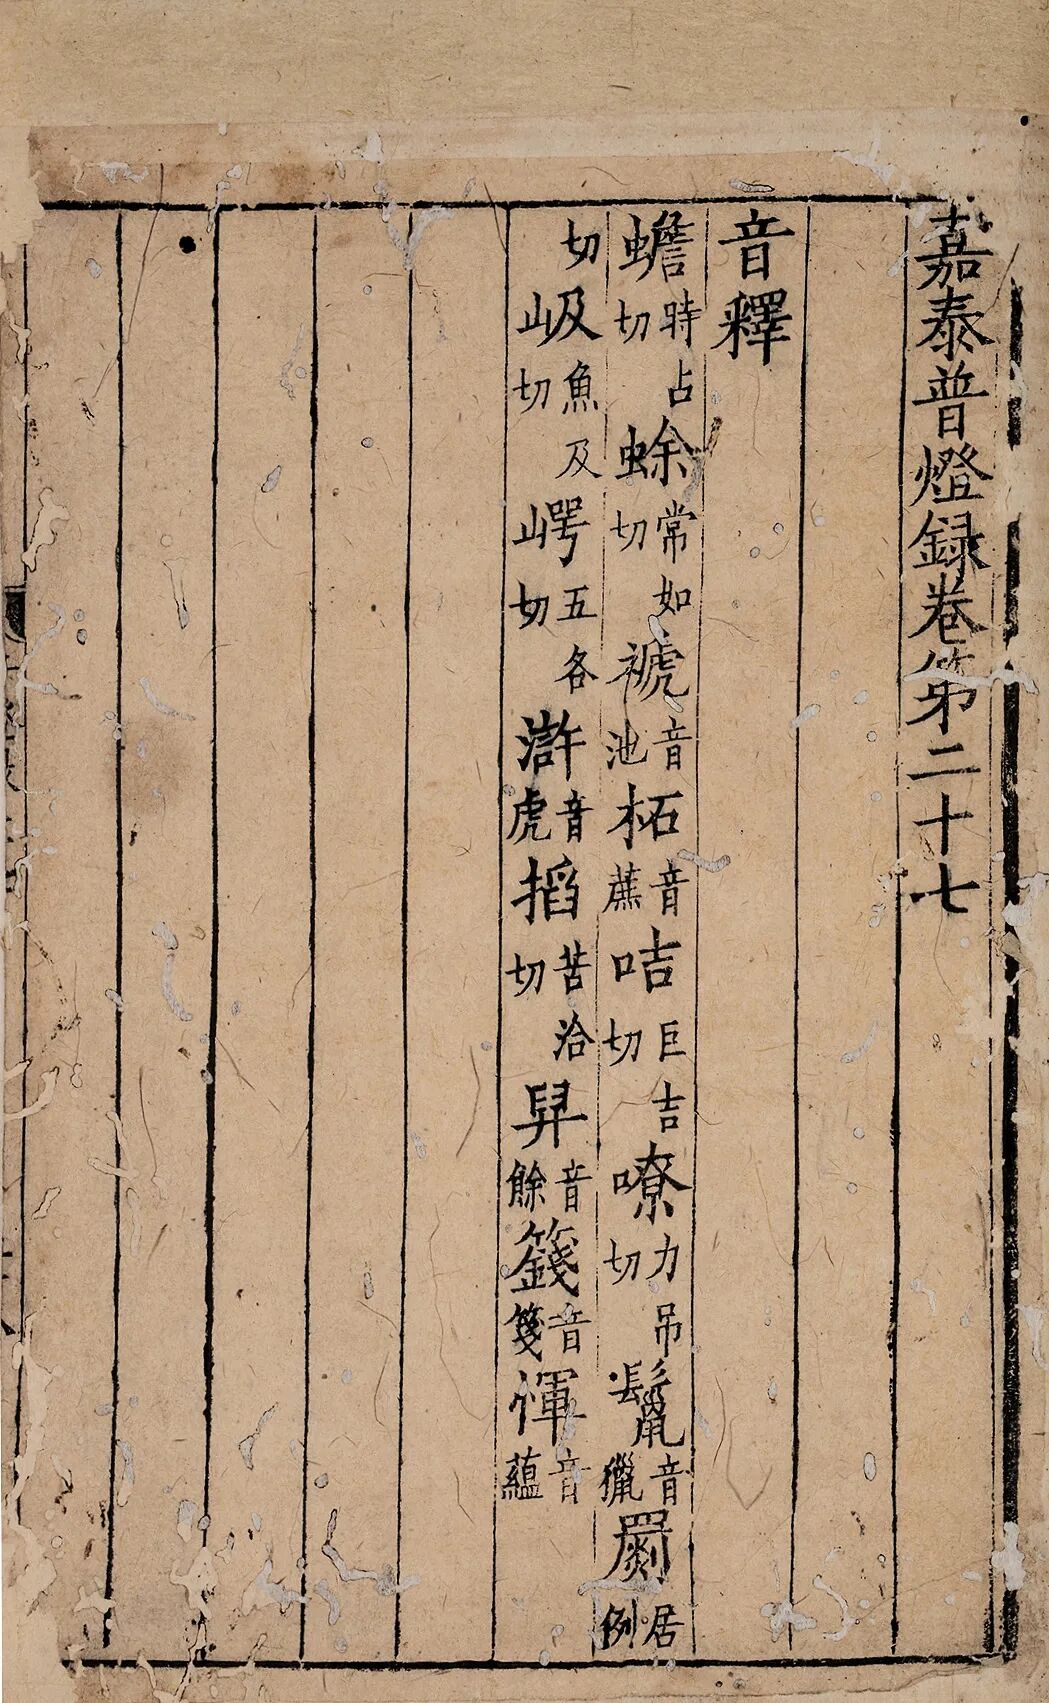 嘉泰普燈録卷第二十七
音釋
蟾時占切蜍常如切褫音池柘音蔗咭巨吉切嘹力吊切鬣音獵罽居例
切岌魚及切崿五各切滸音虎搯苦洽切舁音餘籛音箋惲音蘊